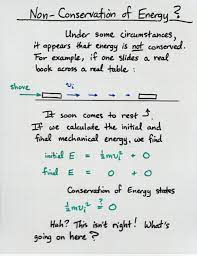 Non-Conservation of Energy?
Under some circumstances,
it appears that energy is not conserved.
For example, if one slides a real
book across a real table:
shove vᵢ
It soon comes to rest.
If we calculate the initial and
final mechanical energy, we find
initial E = ½mvᵢ² + 0
final E = 0 + 0
Conservation of Energy states
½mvᵢ² ≟ 0
Hah? This isn't right! What's
going on here?